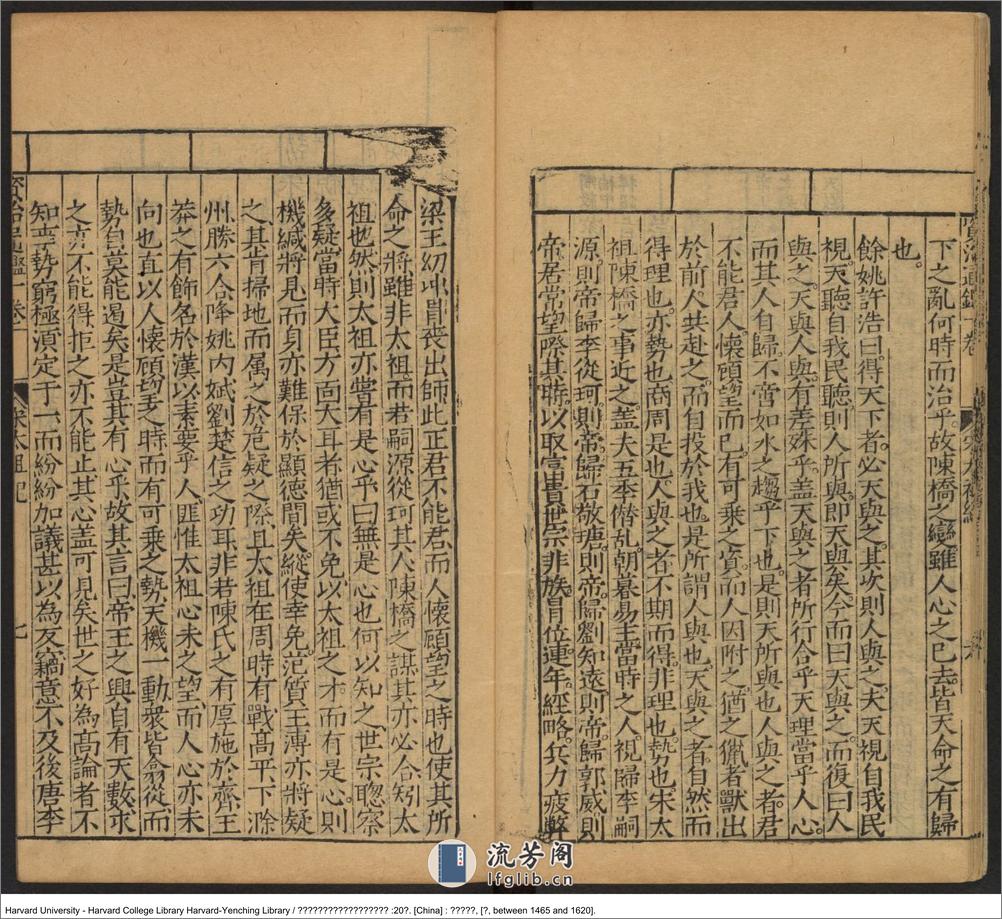 下之亂何時而治乎故陳橋之變雖人心之已去皆天命之有歸
也。
餘姚許浩曰得天下者必天與之其次則人與之夫天視自我民
視天聽自我民聽則人所與即天與矣今而曰天與之而復曰人
與之天與人與有差殊乎盖天與之者所行合乎天理當乎人心
而其人自歸不啻如水之趨乎下也是則天所與也人與之者君
不能君人懷顧望而已有可乘之資而人因附之猶之獵者獸出
於前人共赴之而自投於我也是所謂人與也天與之者自然而
得理也亦勢也商周是也人與之者不期而得非理也勢也宋太
祖陳橋之事近之盖夫五季僭乱朝暮易主當時之人視歸李嗣
源則帝歸李從珂則帝歸石敬瑭則帝歸劉知遠則帝歸郭威則
帝居常望際其時以取富貴世宗非族冒位連年經略兵力疲弊
梁王幻冲員喪出師此正君不能君而人懷顧望之時也使其所
命之將雖非太祖而若嗣源從珂其人陳橋之謀其亦必合矧太
祖也然則太祖亦嘗有是心乎曰無是心也何以知之世宗聰察
多疑當時大臣方面大耳者猶或不免以太祖之才而有是心則
機緘將見而身亦難保於顯德間矣縱使幸免范質王溥亦將疑
之其肯掃地而属之於危疑之際且太祖在周時有戰高平下滁
州勝六合降姚内斌劉楚信之功耳非若陳氏之有厚施於齊王
莽之有飾名於漢以素要乎人匪惟太祖心未之望而人心亦未
向也直以人懷顧望之時而有可乘之勢天機一動衆皆翕從而
勢自莫能遏矣是豈其有心乎故其言曰帝王之興自有天數求
之亦不能得拒之亦不能止其心盖可見矣世之好為高論者不
知季勢窮極湏定于一而紛紛加議甚以為友竊意不及後唐李
資治通鑑 卷一 宋太祖紀 七
流芳阁
lfglib.cn
Harvard University - Harvard College Library Harvard-Yenching Library / ?????????????????? :20?. [China] : ?????, [?, between 1465 and 1620].